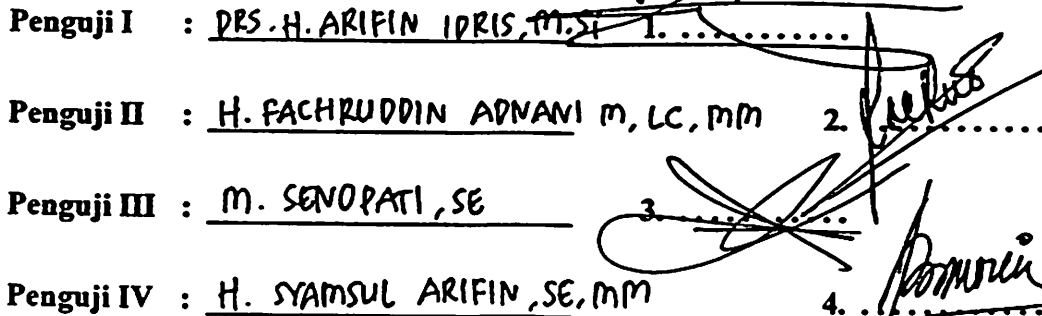 Penguji I : DRS. H. ARIFIN IDRIS, M.SI 1. ............
Penguji II : H. FACHRUDDIN ADNANI M, LC, MM 2. ............
Penguji III : M. SENOPATI, SE 3. ............
Penguji IV : H. SYAMSUL ARIFIN, SE, MM 4. ............